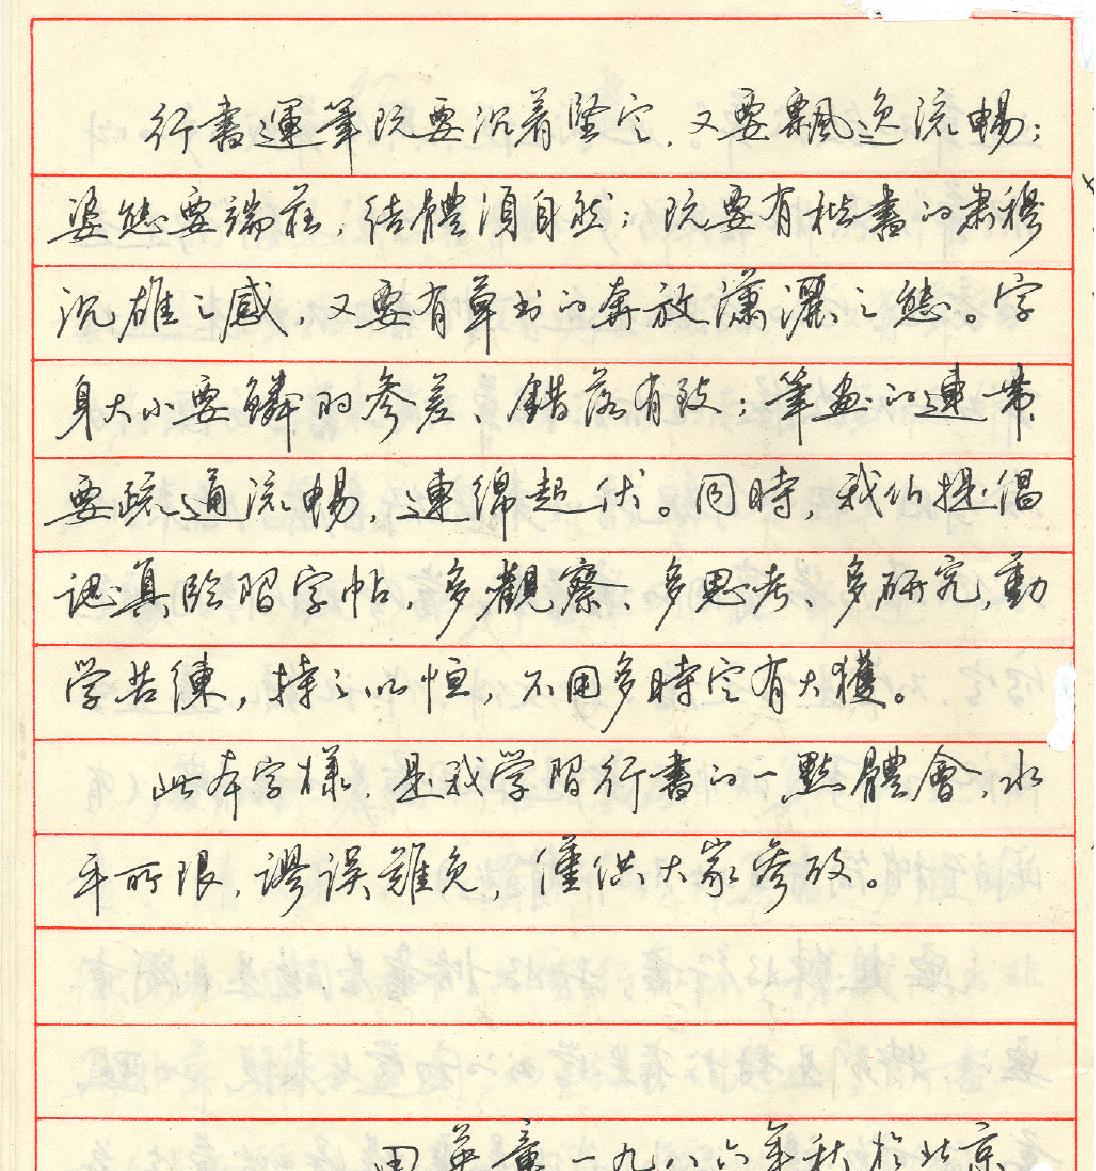 行書運筆既要沉着堅定，又要飄逸流暢；
姿態要端莊，結體須自然；既要有楷書的肅穆
沉雄之感，又要有草书的奔放瀟灑之態。字
身大小要鱗的参差、錯落有致；筆画的連帶
要疏通流暢，連綿起伏。同時，我们提倡
認真臨習字帖，多觀察、多思考、多研究，勤
学苦練，持之以恒，不用多時定有大獲。
此本字樣，是我学習行書的一點體會，水
平所限，謬误難免，僅供大家参考。
田英章一九八六年秋於北京